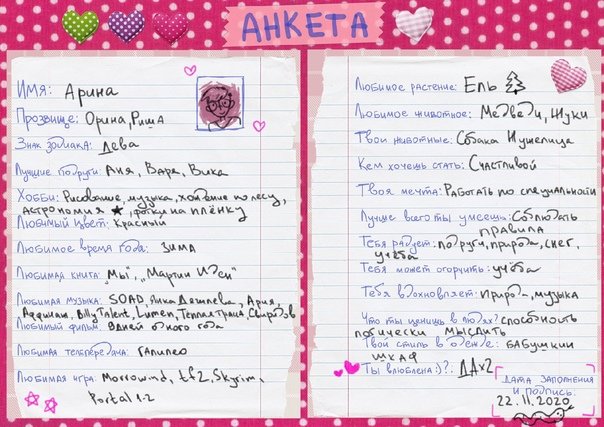 АНКЕТА
Имя: Арина
Прозвище: Орина, Риша
Знак зодиака: дева
Лучшие подруги: Аня, Варя, Вика
Хобби: Рисование, музыка, хождение по лесу,
астрономия, фотки на плёнку
Любимый цвет: Красный
Любимое время года: зима
Любимая книга: "Мы", "Мартин Иден"
Любимая музыка: SOAD, Янка Дягилева, Ария,
Аффинаж, Billy Talent, Lumen, Теплая трасса, Свиридов
Любимый фильм: 8 дней одного года
Любимая телепередача: Галилео
Любимая игра: Morrowind, tf2, Skyrim,
Portal 1-2
Любимое растение: Ель
Любимое животное: Медведи, жуки
Твои животные: Собака Пушелица
Кем хочешь стать: Счастливой
Твоя мечта: Работать по специальности
Лучше всего ты умеешь: Соблюдать
правила
Тебя радует: подруги, природа, снег,
учёба
Тебя может огорчить: учёба
Тебя вдохновляет: Природа, музыка
Что ты ценишь в людях? способность
логически мыслить
Твой стиль в одежде: бабушкин
шкаф
Ты влюблена :)?: ДАx2
Дата заполнения
и подпись:
22.11.2020